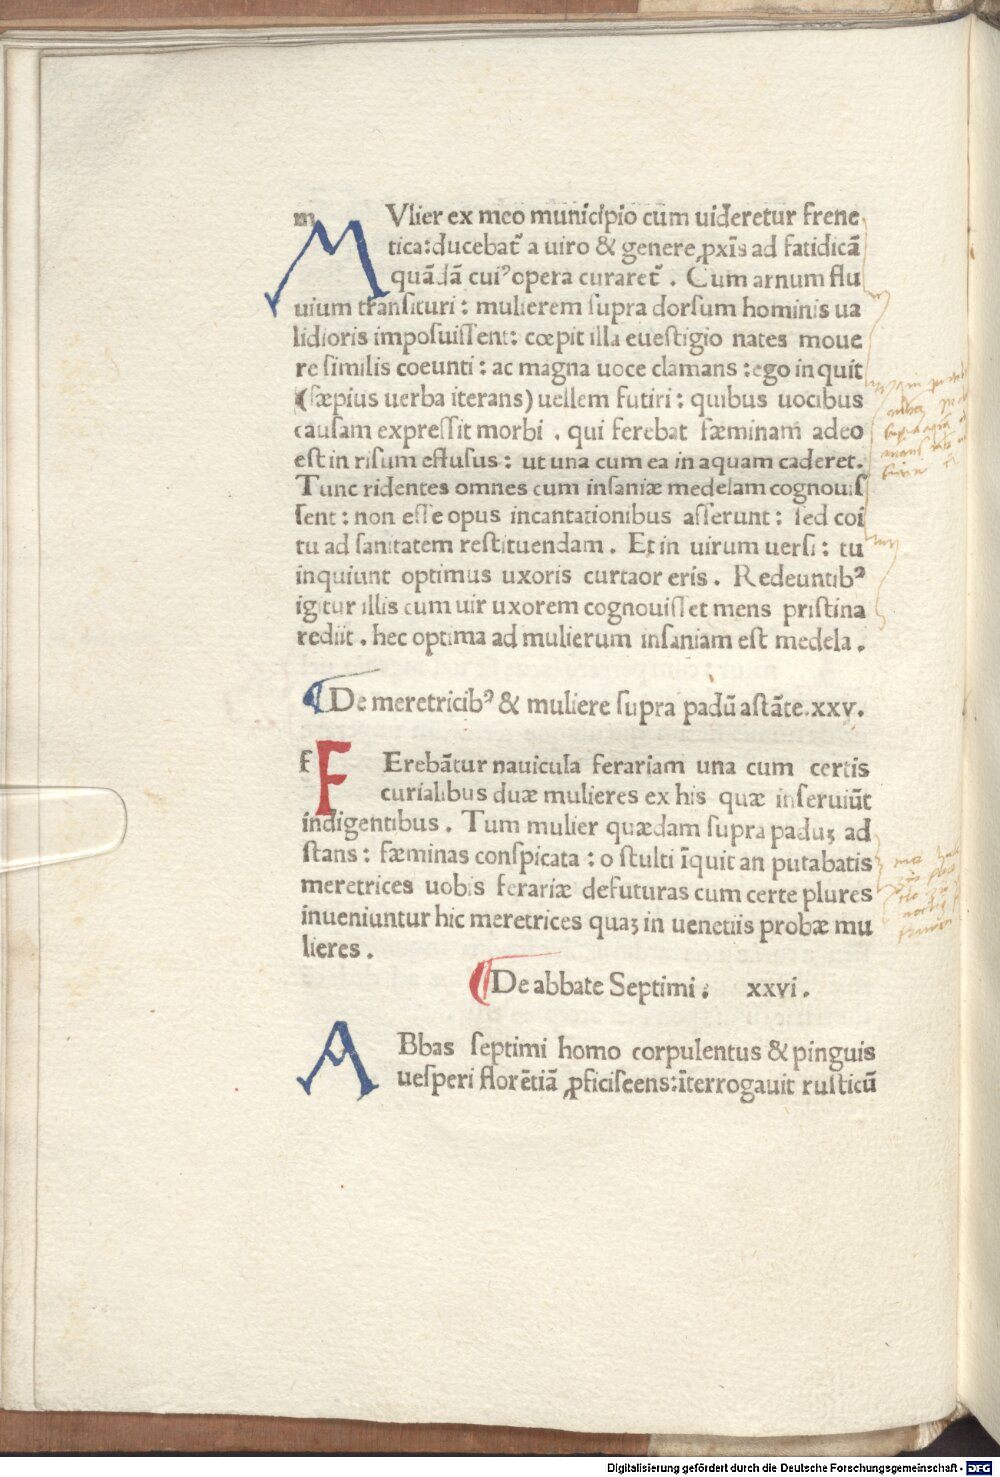 MVlier ex meo municipio cum uideretur frene
tica:ducebat̃ a uiro & genere ꝓxĩs ad fatidicã
quãdã cuiꝰ opera curaret̃. Cum arnum flu
uium transituri: mulierem ſupra dorſum hominis ua
lidioris impoſuiſſent: cœpit illa eueſtigio nates moue
re ſimilis coeunti: ac magna uoce clamans: ego inquit
(ſæpius uerba iterans) uellem futiri: quibus uocibus
cauſam expreſſit morbi. qui ferebat fæminam adeo
eſt in riſum effuſus: ut una cum ea in aquam caderet.
Tunc ridentes omnes cum inſaniæ medelam cognouiſ
ſent: non eſſe opus incantationibus aſſerunt: ſed coi
tu ad ſanitatem reſtituendam. Et in uirum uerſi: tu
inquiunt optimus uxoris curtaor eris. Redeuntibꝰ
igitur illis cum uir uxorem cognouiſſet mens priſtina
rediit. hec optima ad mulierum inſaniam eſt medela.
¶De meretricibꝰ & muliere ſupra padũ aſtãte.xxv.
FErebãtur nauicula ferariam una cum certis
curialibus duæ mulieres ex his quæ inſeruiũt
indigentibus. Tum mulier quædam ſupra paduꝫ ad
ſtans: fæminas conſpicata: o ſtulti ĩquit an putabatis
meretrices uobis ferariæ defuturas cum certe plures
inueniuntur hic meretrices quaꝫ in uenetiis probæ mu
lieres.
¶De abbate Septimi. xxvi.
ABbas ſeptimi homo corpulentus & pinguis
ueſperi florẽtiã ꝓficiſcens:ĩterrogauit ruſticũ
Digitalisierung gefördert durch die Deutsche Forschungsgemeinschaft - DFG